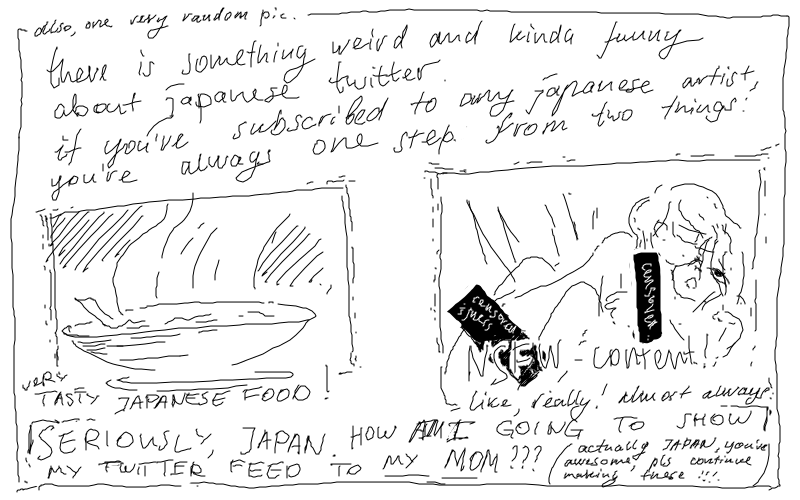 also, one very random pic.
there is something weird and kinda funny
about japanese twitter.
if you've subscribed to any japanese artist,
you're always one step from two things:
censored
censored
NSFW-content!
very
TASTY JAPANESE FOOD!
like, really! Almost always.
SERIOUSLY, JAPAN, HOW AM I GOING TO SHOW
MY TWITTER FEED TO MY MOM???
actually JAPAN, you're
awesome, pls continue
making these !!!